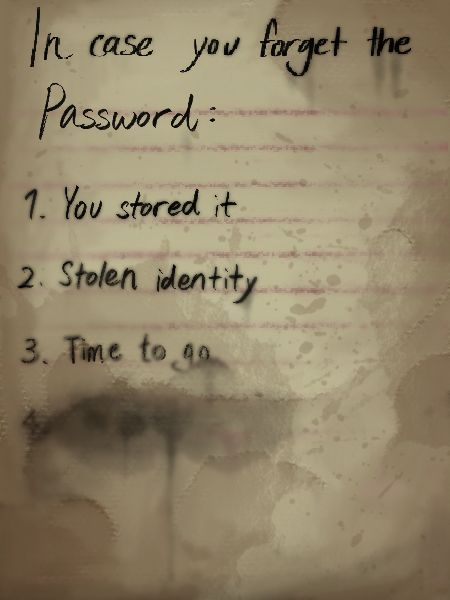 In case you forget the
Password:
1. You stored it
2. Stolen identity
3. Time to go